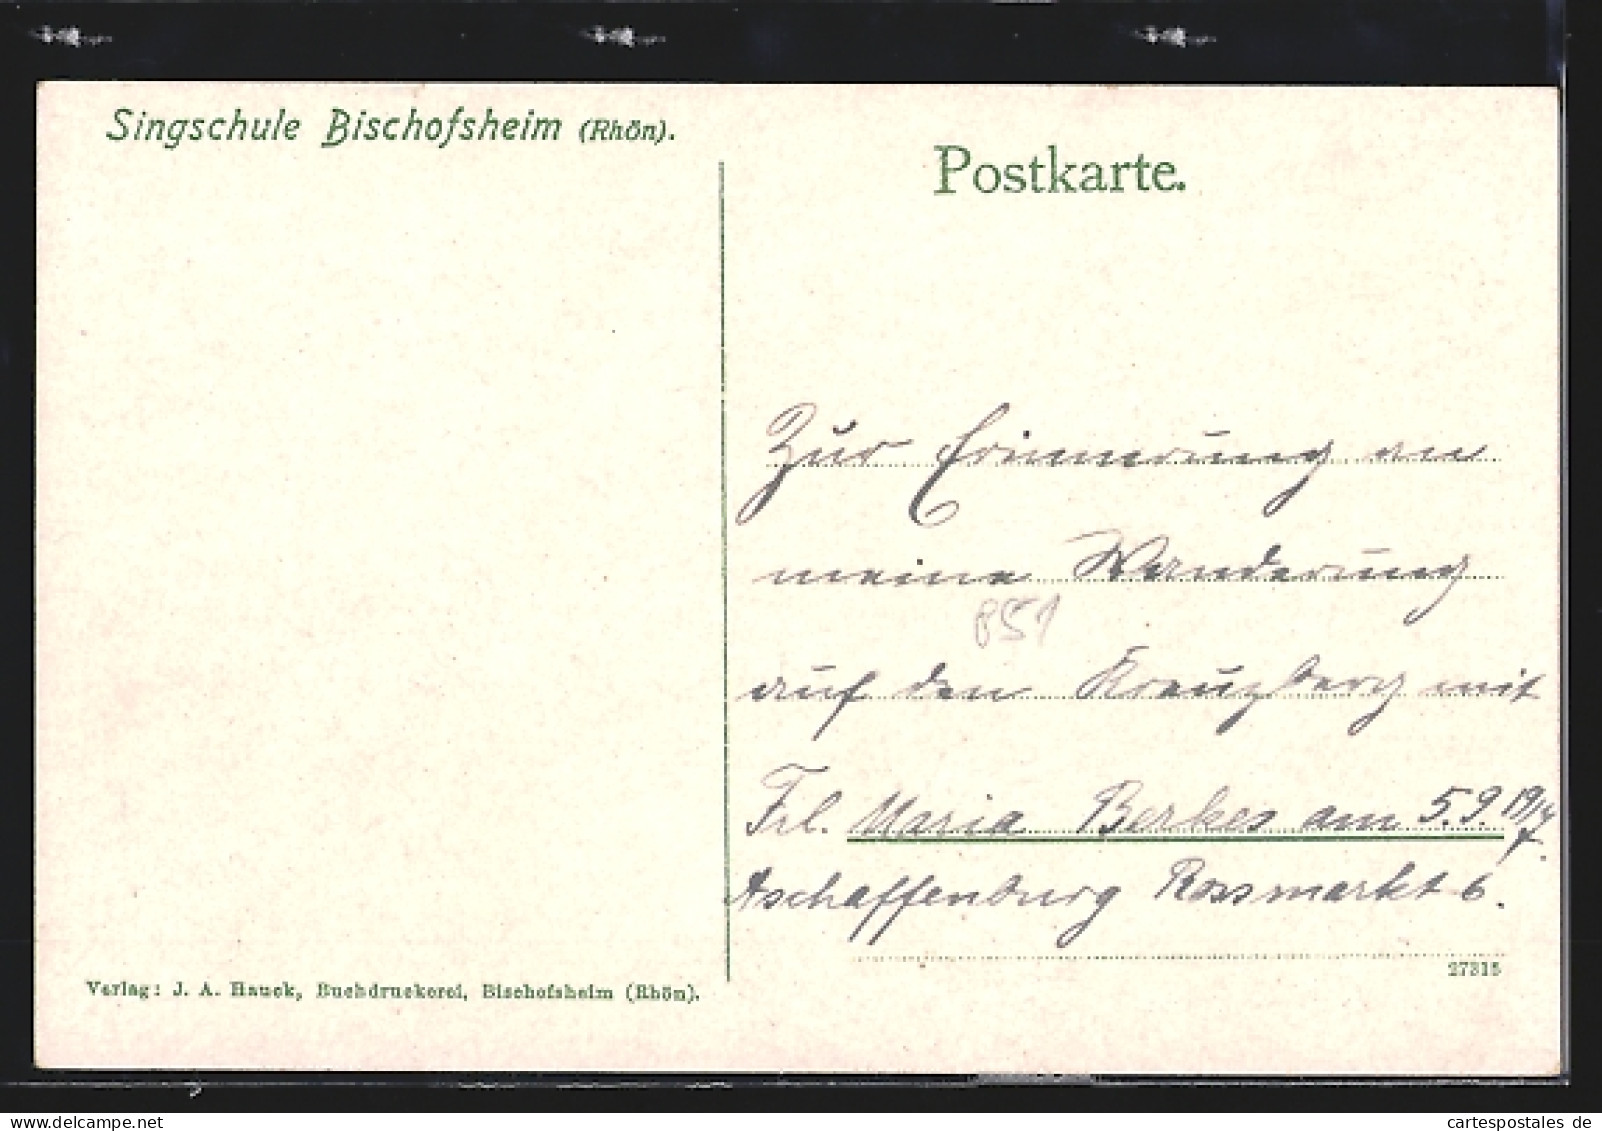 Singschule Bischofsheim (Rhön).
Postkarte.
Zur Erinnerung an
meine Wanderung
851
auf den Kreuzberg mit
Frl. Maria Berkes am 5.9.19
Aschaffenburg Rossmarkt 6.
27315
Verlag: J. A. Hauck, Buchdruckerei, Bischofsheim (Rhön).
www.oldthing.de
cartespostales de